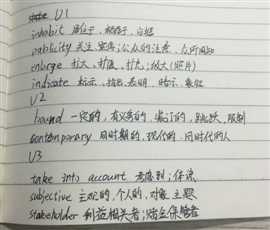 U1
inhabit 居住于, 栖居于, 占据
publicity 关注, 宣传; 公众的注意, 众所周知
enlarge 扩大, 扩展, 扩充; 放大(照片)
indicate 标示, 指出, 表明 暗示, 象征
U2
bound 一定的, 有义务的 装订的, 跳跃, 限制
contemporary 同时期的, 现代的, 同时代的人
U3
take into account 考虑到;
subjective 主观的, 个人的, 对象 主题
stakeholder 利益相关者; 赌金保管者